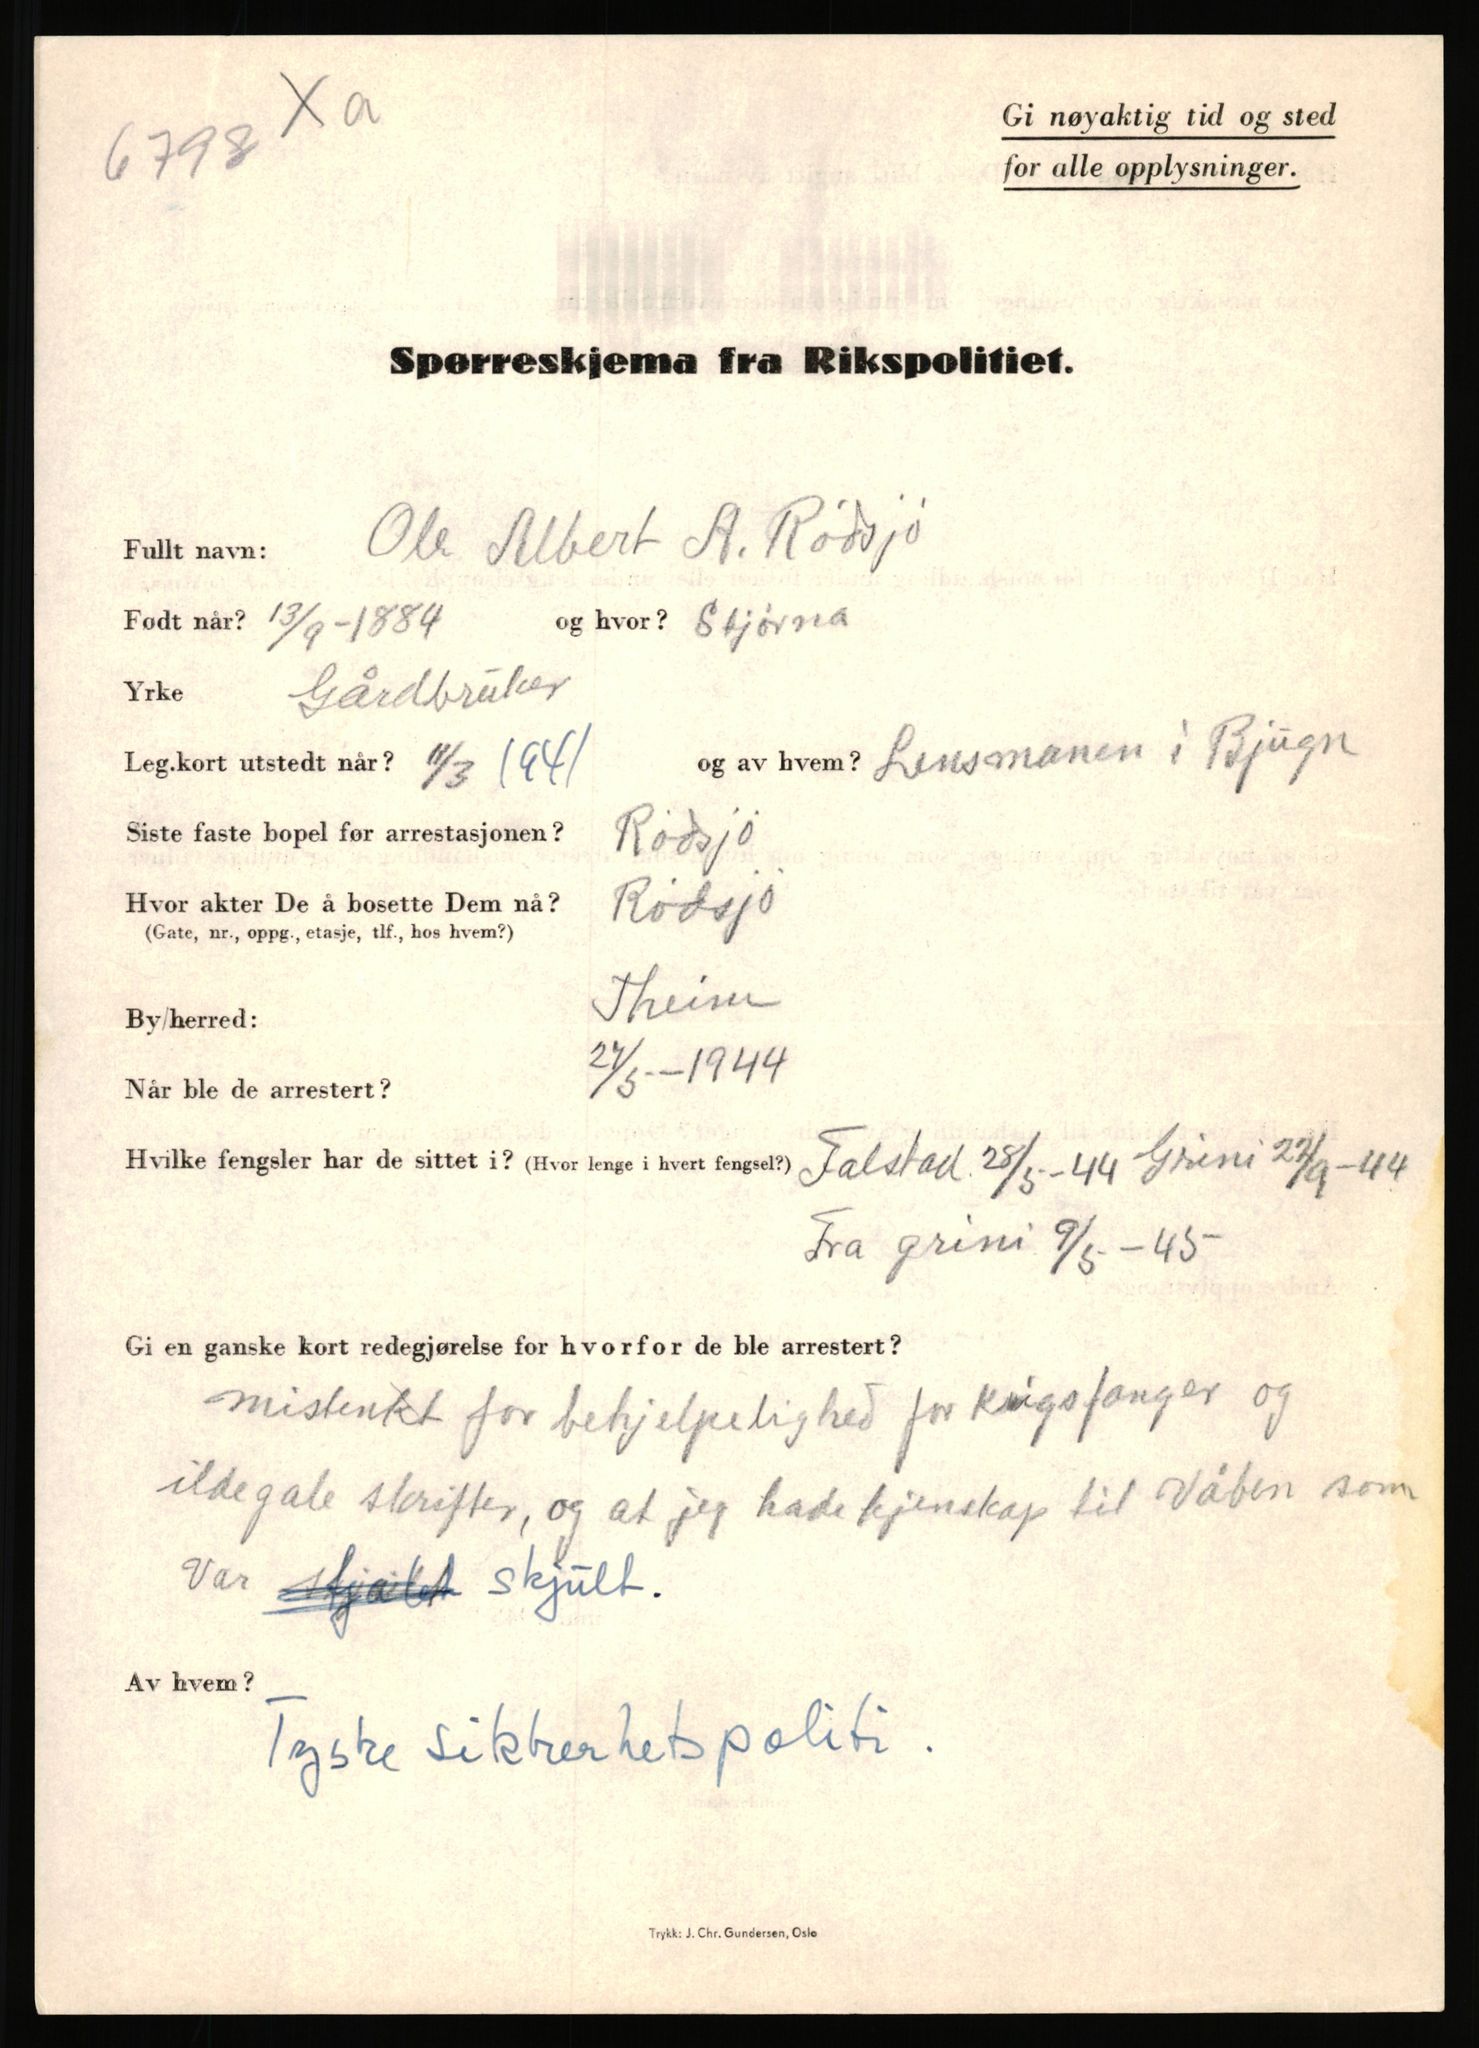 6798 X a
Gi nøyaktig tid og sted
for alle opplysninger.
Spørreskjema fra Rikspolitiet.
Fullt navn: Ole Albert A. Rödsjö
Født når? 13/9-1884 og hvor? Stjørna
Yrke Gårdbruker
Leg.kort utstedt når? 11/3 1941 og av hvem? Lensmanen i Bjugn
Siste faste bopel før arrestasjonen? Rödsjö
Hvor akter De å bosette Dem nå? Rödsjö
(Gate, nr., oppg., etasje, tlf., hos hvem?)
By/herred:
Når ble de arrestert? 27/5-1944
Hvilke fengsler har de sittet i? (Hvor lenge i hvert fengsel?) Falstad 28/5-44 Grini 22/9-44
Fra grini 9/5-45
Gi en ganske kort redegjørelse for hvorfor de ble arrestert?
mistenkt for behjelpelighed for krigsfanger og
ildegale skrifter, og at jeg hade kjenskap til Våben som
var skjult.
Av hvem?
Tyske sikkerhetspoliti.
Trykk: J. Chr. Gundersen, Oslo